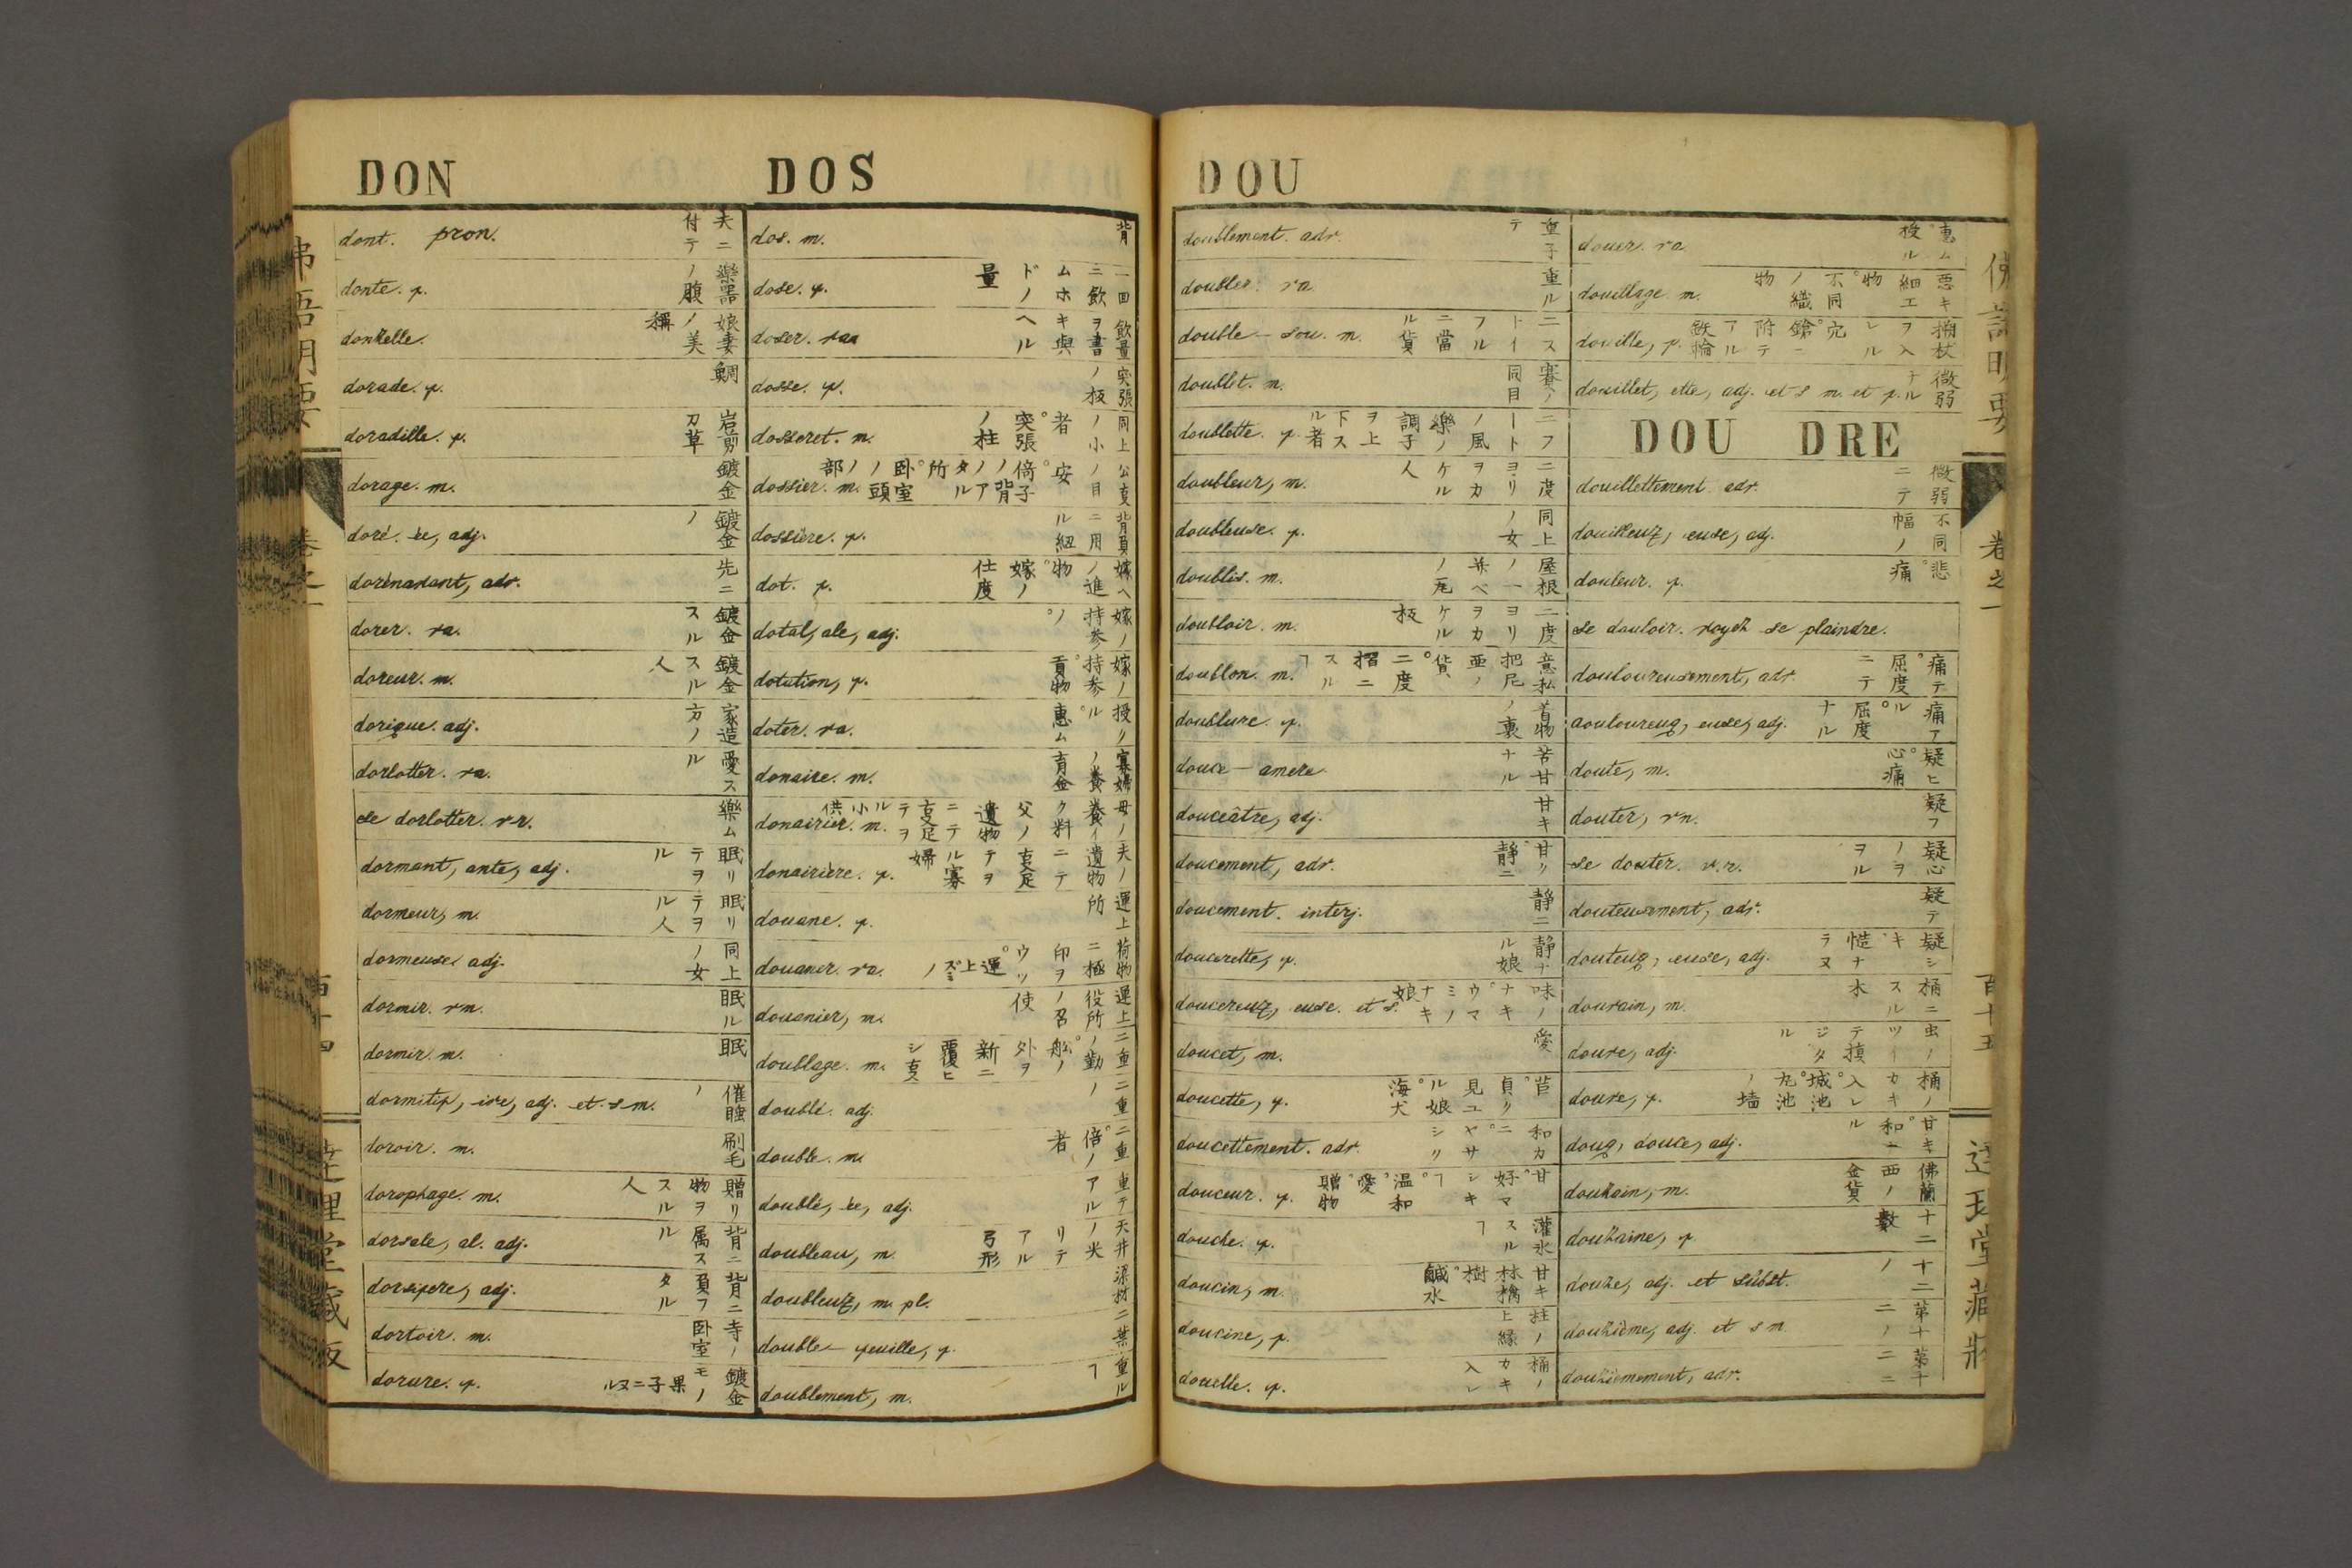 DON
dont. pron. 夫ニ付テ
donte. f. 樂器ノ腹
donzelle. 娘妻ノ美稱
dorade. f. 鯛
doradille. f. 岩剪刀草
dorage. m. 鍍金
doré. ée, adj. 鍍金ノ
dorénavant, adv. 先ニ
dorer. va. 鍍金スル
doreur. m. 鍍金スル人
dorique. adj. 家造方ノ
dorlotter. va. 愛スル
se dorlotter. vr. 樂ム
dormant, ante, adj. 眠リテヲル
dormeur, m. 眠リテヲル人
dormeuse. adj. 同上ノ女
dormir. vn. 眠ル
dormir. m. 眠
dormitif, ive, adj. et. s m. 催睡ノ
doroir. m. 刷毛
dorophage. m. 贈リ物ヲスル人
dorsale, al. adj. 背ニ属スル
dorsifere, adj. 背ニ負フタル
dortoir. m. 寺ノ卧室
dorure. f. 鍍金モノ 果子ニヌル
DOS
dos. m. 背
dose. f. 一回ニ飲ムホドノ量
doser. va. 飲量ヲ書キ與ヘル
dosse. f. 突張ノ板
dosseret. m. 同上ノ小者。突張ノ柱
dossier. m.
dossière. f. 背負ニ用ル紐
dot. f. 嫁ヘノ進物。嫁ノ仕度
dotal, ale, adj. 嫁ノ持参ノ。
dotation, f. 嫁ノ持参。貢物
doter. va. 授ケル。惠ム
donaire. m. 寡婦ノ養育金
donairier. m.
donairière. f. 夫ノ遺物ニテ支足テヲル寡婦
douane. f. 運上所
douaner. va.
douanier, m. 運上役所ノ召使
doublage. m.
double. adj. 二重ノ
double. m. 二重。倍ノ者
doublé, ée, adj. 重テアル
doubleau, m. 天井ノ尖リテアル弓形
doubleuz, m. pl. 梁材
double—feuille, f. 二葉
doublement, m. 重ルヿ
DOU
doublement. adv. 重子テ
doubler. va. 重ル
double—sou. m. 二ストイフルニ當ル貨
doublet. m. 賽ノ同目
doublette. f.
doubleur, m. 二度ヨリヲカケル人
doubleuse. f. 同上ノ女
doublis. m. 屋根ノ一並ベノ瓦
doubloir. m. 二度ヨリヲカケル板
doublon. m. 意私把尼亜ノ貨。二度ニ摺スルヿ
doublure. f. 着物ノ裏
douce—amere. 苦甘ナル
douceâtre, adj. 甘キ
doucement, adv. 甘ク。静ニ
doucement. interj. 静ニ
doucerette, f. 静ナル娘
doucereuz, euse. et s. 味ノナキ。ウマミノナキ娘
doucet, m. 愛
doucette, f.
doucettement. adv. 和カニ。ヤサシク
douceur. f. 甘。好マシキヿ。温和。愛。贈物
douche. f. 灌水スルヿ
doucin, m. 甘キ林檎樹。鹹水
doucine, f. 柱ノ上緣
douelle. f. 桶ノカキ入レ
douer. va 惠ム。授ル
douillage. m. 悪キ細工物。不同ノ織物
douille, f.
douillet, ette, adj. et s m. et f. 微弱ナル
DOU DRE
douillettement. adv. 微弱ニテ
douilleuz, euse, adj. 不同幅ノ
douleur. f. 悲。痛
se douloir. voyez se plaindre.
douloureusement, adv. 痛テ。屈度ニテ
douloureuz, euse, adj. 痛アル。屈度ナル
doute, m. 疑ヒ。心痛
douter, vn. 疑フ
se douter. v.r. 疑心ノヲヲル
douteusement, adv. 疑テ
douteuz, euse, adj. 疑シキ。慥ナラヌ
douvain, m. 桶ニスル木
douve, adj.
douve, f. 桶ノカキ入レ。城池。丸池ノ墻
douz, douce, adj. 甘キ。和ナル
douzain, m. 佛蘭西ノ金貨
douzaine, f. 十二數
douze, adj. et subst. 十二ノ
douzième, adj. et s m 第十二ノ
douzièmement, adv. 第十二ニ
佛語明要
卷之一
百十五
達理堂藏版